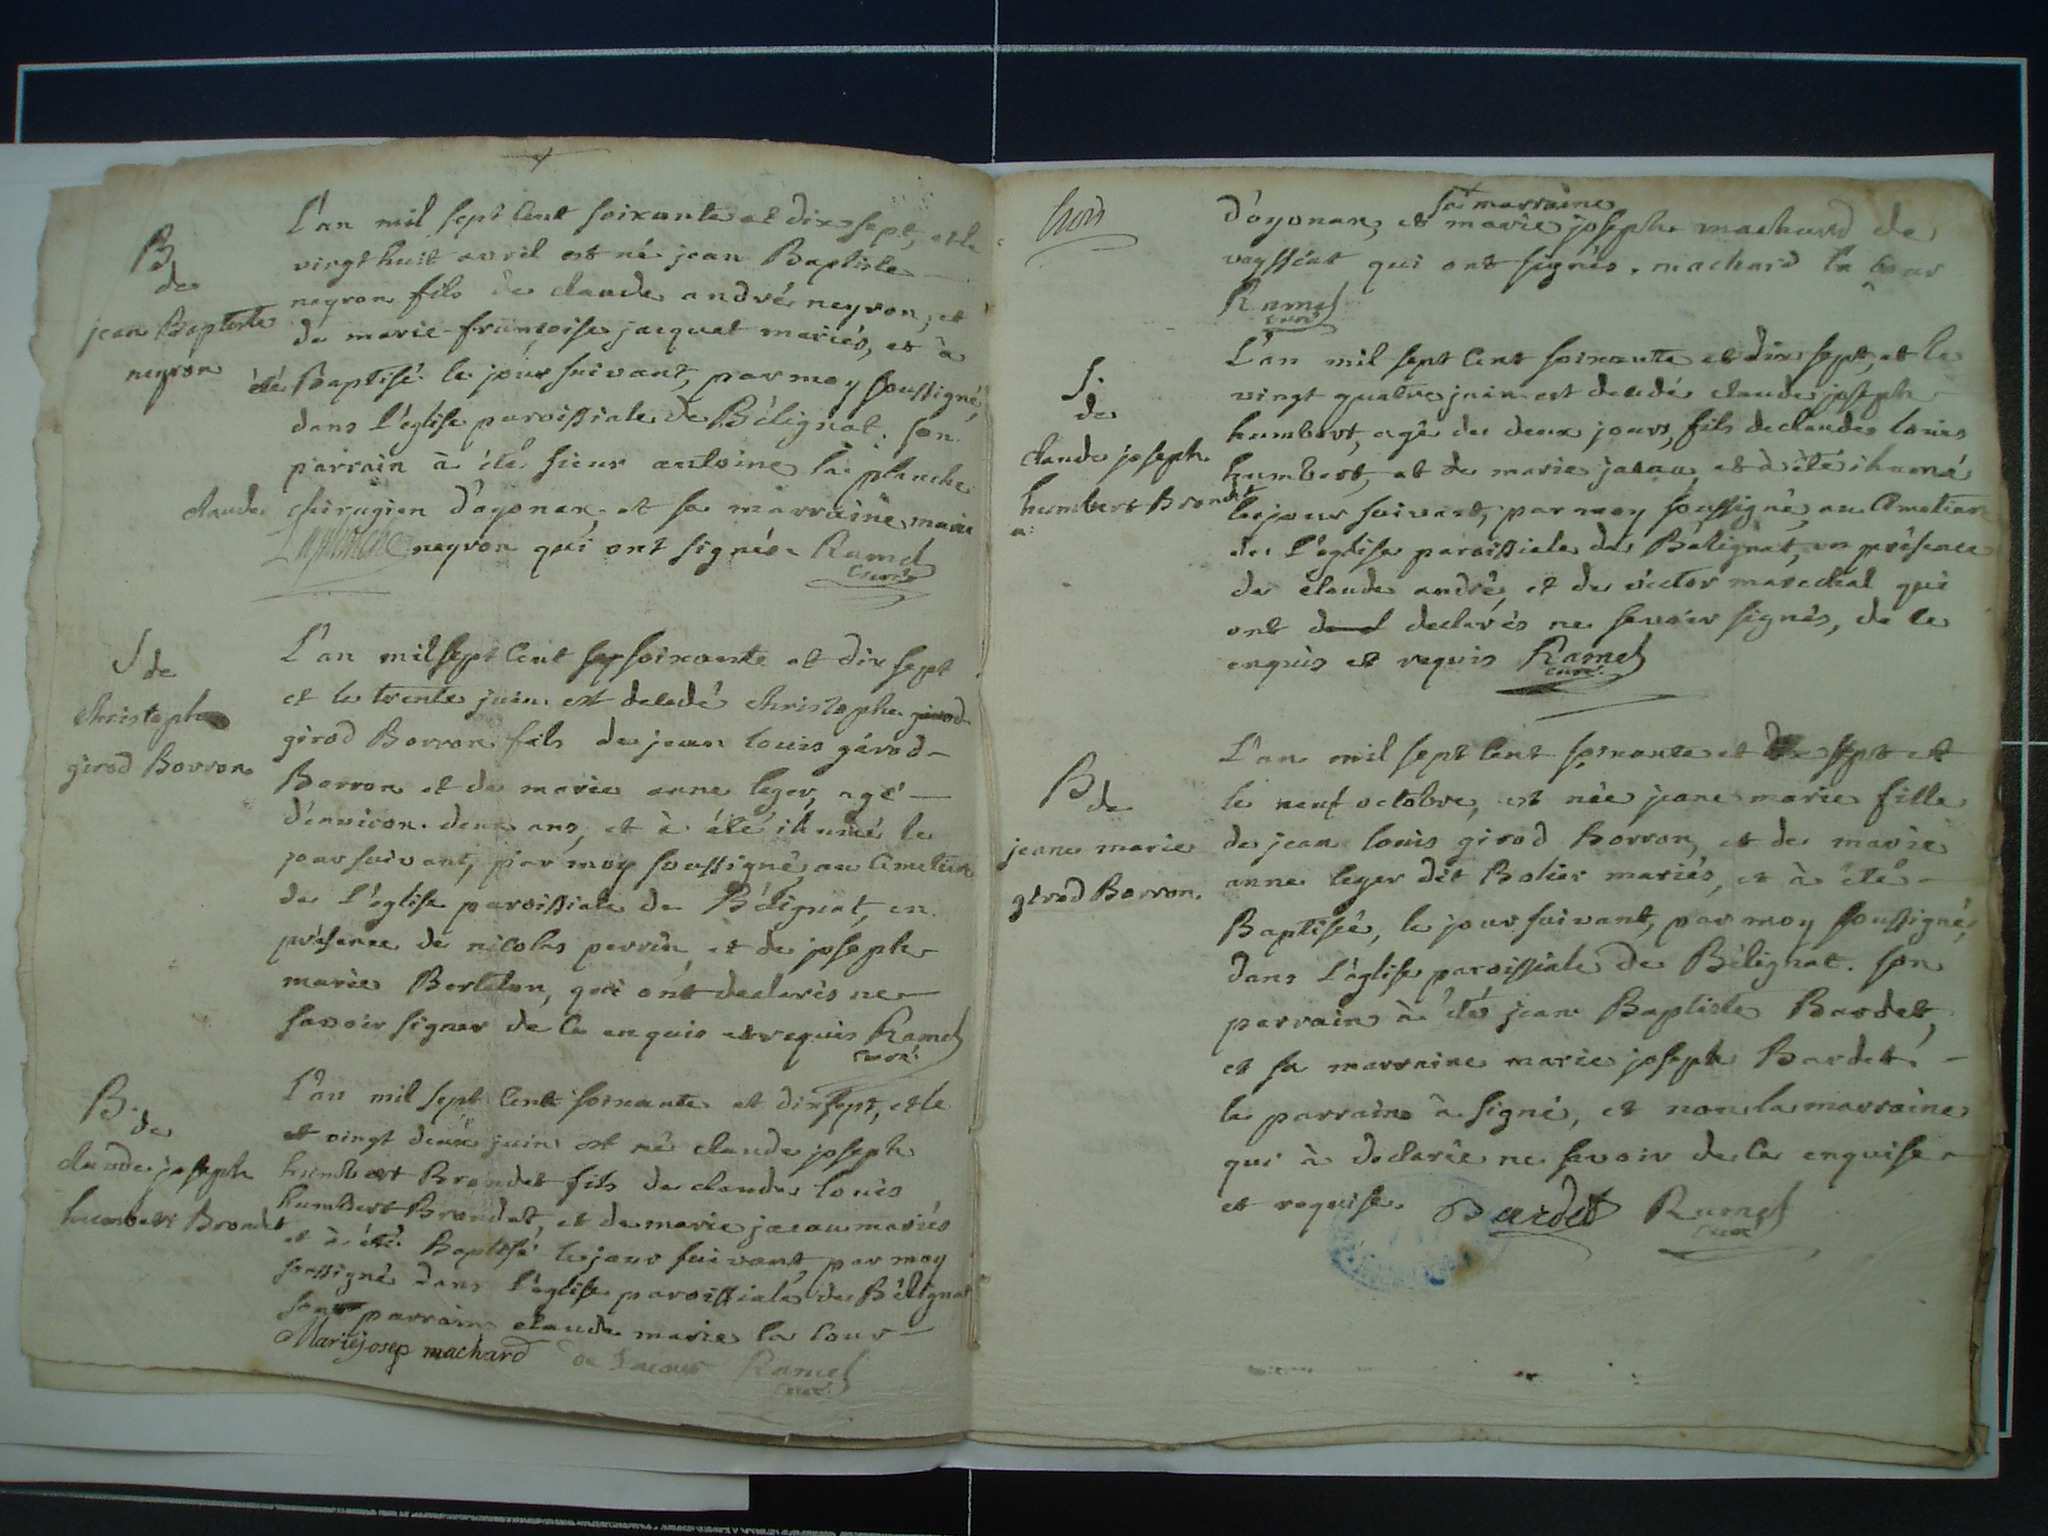 B
de
jean Baptiste
neyron
L'an mil sept Cent soixante et dix sept, et le
vingt huit avril est né jean Baptiste
neyron fils de claude andré neyron, et
de marie-françoise jacquet mariés, et à
été Baptisé le jour suivant, par moy soussigné,
dans l'église paroissiale de Bélignat. son
parrain à été sieur antoine la planche
chirugien d'oyonax, et sa marraine marie
claude neyron qui ont signés. Ramel
Laplanche curé
S de
christophe
girod Borron
L'an mil sept Cent sep soixante et dix sept
et le trente juin est décédé christophe girod
girod Borron fils de jean louis gérod
Borron et de marie anne leger, agé
d'environ deux ans, et à été ihumé le
jour suivant, par moy soussigné, au Cimetiere
de l'église paroissiale de Bélignat, en
présence de nicolas perrin, et de joseph
marie Bertelon, qui ont declarés ne
savoir signer de ce enquis et requis Ramel
curé.
B. de
claude joseph
humbert Brondet
L'an mil sept Cent soixante et dix sept, et le
et vingt deux juin est né claude joseph
humbert Brondet fils de claude louis
humbert Brondet, et de marie jacau mariés
et à été Baptisé le jour suivant, par moy
soussigné dans l'église paroissiale de Bélignat
son parrain claude marie la Cour
Marie josep machard de Lacour Ramel
curé
trois
sa marraine
d'oyonax, et marie joseph machard de
veyssiat qui ont signés. machard la Cour
Ramel
curé
S.
de
claude joseph
humbert Brondet
L'an mil sept Cent soixante et dix sept, et le
vingt quatre juin est decedé claude joseph
humbert, agé de deux jours, fils de claude louis
humbert, et de marie jacau, et à été ihumé
le jour suivant, par moy soussigné, au Cimetiere
de l'église paroissiale de Bélignat, en présence
de claude andré, et de victor marechal qui
ont declarés ne savoir signés, de ce
enquis et requis Ramel
curé.
B de
jeane marie
girod Borron.
L'an mil sept Cent soixante et dix sept et
le neuf octobre, est née jeane marie fille
de jean louis girod Borron, et de marie
anne leger dit Bolier mariés, et à été
Baptisée, le jour suivant, par moy soussigné,
dans l'église paroissiale de Bélignat. son
parrain à été jean Baptiste Bardet,
et sa marraine marie joseph Bardet
le parrain à signé, et non la marraine
qui à declarée ne savoir de ce enquise
et requise. Bardet Ramel
curé